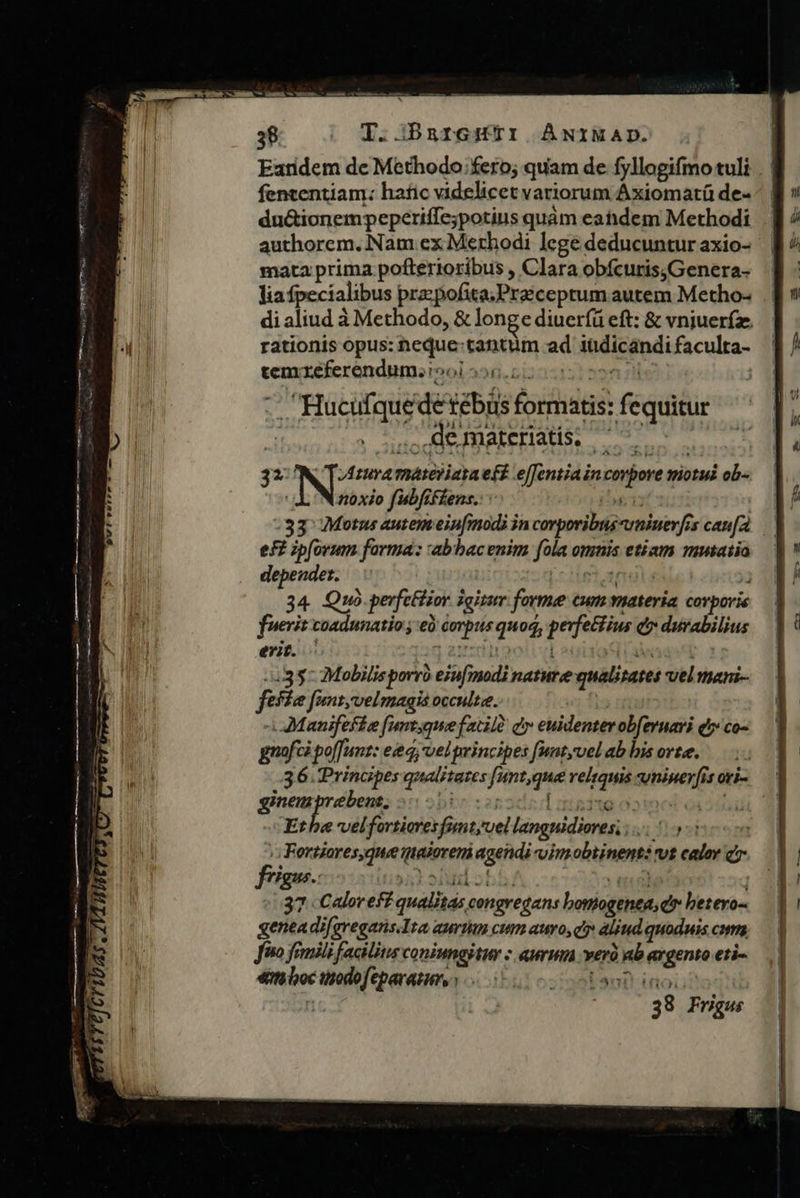 38 T. BRIGHTI ANIMAD.
Eandem de Methodo fero; quam de syllogismo tuli
sententiam: hanc videlicet variorum Axiomatū de-
ductionem peperisse; potius quàm eandem Methodi
authorem. Nam ex Methodi lege deducuntur axio-
mata prima posterioribus, Clara obscuris, Genera-
lia specialibus præposita. Præceptum autem Metho-
di aliud à Methodo, & longe diuersū est: & vniuersæ
rationis opus: neque tantùm ad iudicandi faculta-
tem referendum.
Hucusque de rebus formatis: sequitur
de materiatis.
32 NAtura materiata est essentia in corpore motui ob-
noxio subsistens.
33 Motus autem eiusmodi in corporibus vniuersis causa
est ipsorum forma: ab hac enim sola omnis etiam mutatio
dependet.
34 Quò perfectior igitur forme cum materia corporis
fuerit coadunatio; eò corpus quoq; perfectius & durabilius
erit.
35 Mobilis porrò eiusmodi nature qualitates vel mani-
feste sunt, vel magis occulte.
Manifeste sunt, que facilè & euidenter obseruari & co-
gnosci possunt: eæq; vel principes sunt, vel ab his orte.
36 Principes qualitates sunt, que reliquis vniuersis ori-
ginem præbent.
Et he vel fortiores sunt, vel languidiores.
Fortiores, que maiorem agendi vim obtinent: vt calor &
frigus.
37 Calor est qualitas congregans homogenea, & hetero-
genea disgregans. Ita aurum cum auro, & aliud quoduis cum
suo simili facilius coniungitur: aurum verò ab argento eti-
am hoc modo separatur.
38 Frigus